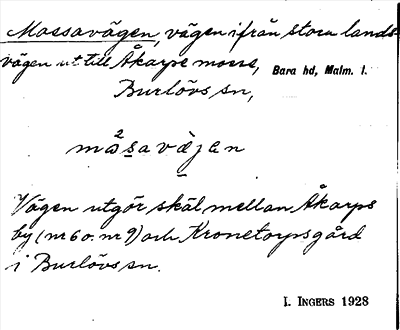 Massavägen, vägen ifrån stora lands-
vägen ut till Åkarps mosse, Bara hd, Malm. l.
Burlövs sn,
Vägen utgör skäl mellan Åkarps
by (nr 6 o. nr 9) och Kronetorpsgård
i Burlövs sn.
I. INGERS 1928